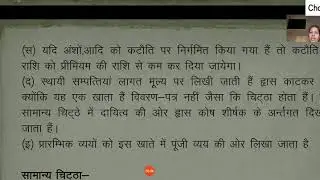 Cho
(स) यदि अंशों,आदि को कटौति पर निर्गमित किया गया हैं तो कटौति
राशि को प्रीमियम की राशि से कम कर दिया जायेगा।
(द) स्थायी सम्पत्तियां लागत मूल्य पर लिखी जाती हैं ह्रास काटकर
क्योंकि यह एक खाता हैं विवरण–पत्र नहीं जैसा कि चिट्ठा होता हैं।
सामान्य चिट्ठे में दायित्व की ओर ह्रास कोष शीर्षक के अर्न्तगत दिख
जाता हैं।
(इ) प्रारम्भिक व्ययों को इस खाते में पूंजी व्यय की ओर लिखा जाता है
सामान्य चिटठा–